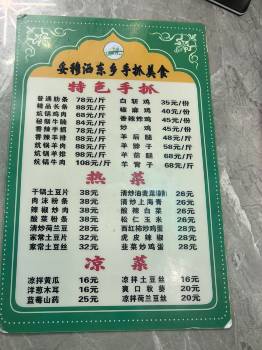 妥穆洒东乡手抓美食
特色手抓
普通肋条 78元/斤
精品长条 88元/斤
炕锅鸡肉 68元/斤
秘制牛腩 84元/斤
香辣羊蹄 88元/斤
香辣羊排 88元/斤
炕锅羊肉 88元/斤
炕锅羊排 98元/斤
炕锅牛肉 88元/斤
白斩鸡 35元/份
椒麻鸡 40元/份
香辣炒鸡 45元/份
炒鸡 45元/份
羊前腿 68元/斤
羊脖子 58元/斤
羊后腿 68元/斤
羊肯子 68元/斤
热菜
干锅土豆片 38元
肉沫粉条 38元
辣椒炒肉 38元
酸菜粉条 38元
清炒荷兰豆 28元
家常土豆片 32元
家常土豆丝 32元
清炒油麦菜 28元
清炒上海青 26元
酸辣白菜 26元
松仁玉米 26元
西红柿炒鸡蛋 28元
虎皮辣椒 28元
韭菜炒鸡蛋 28元
凉菜
凉拌黄瓜 16元
洋葱木耳 16元
蓝莓山药 25元
凉拌土豆丝 16元
爽口耿葵 20元
凉拌荷兰豆丝 20元